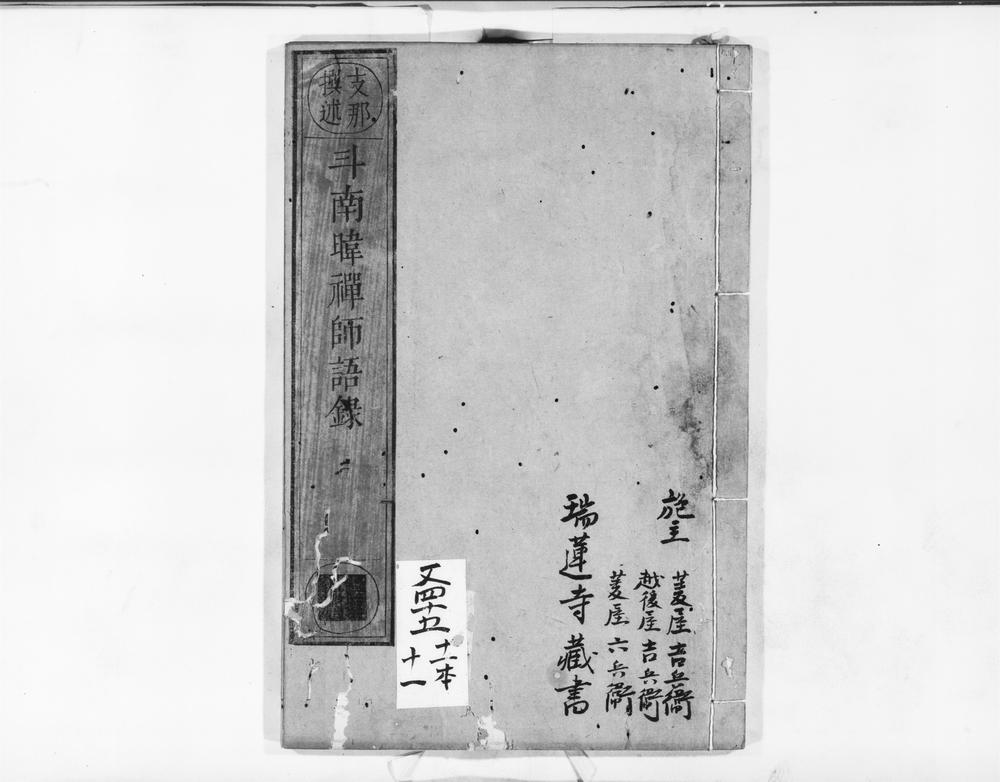 施主
菱屋吉兵衛
越後屋吉兵衛
菱屋六兵衛
瑞蓮寺藏書
又四十五
十一本
十一
支那
撰述
斗南暐禪師語錄
二